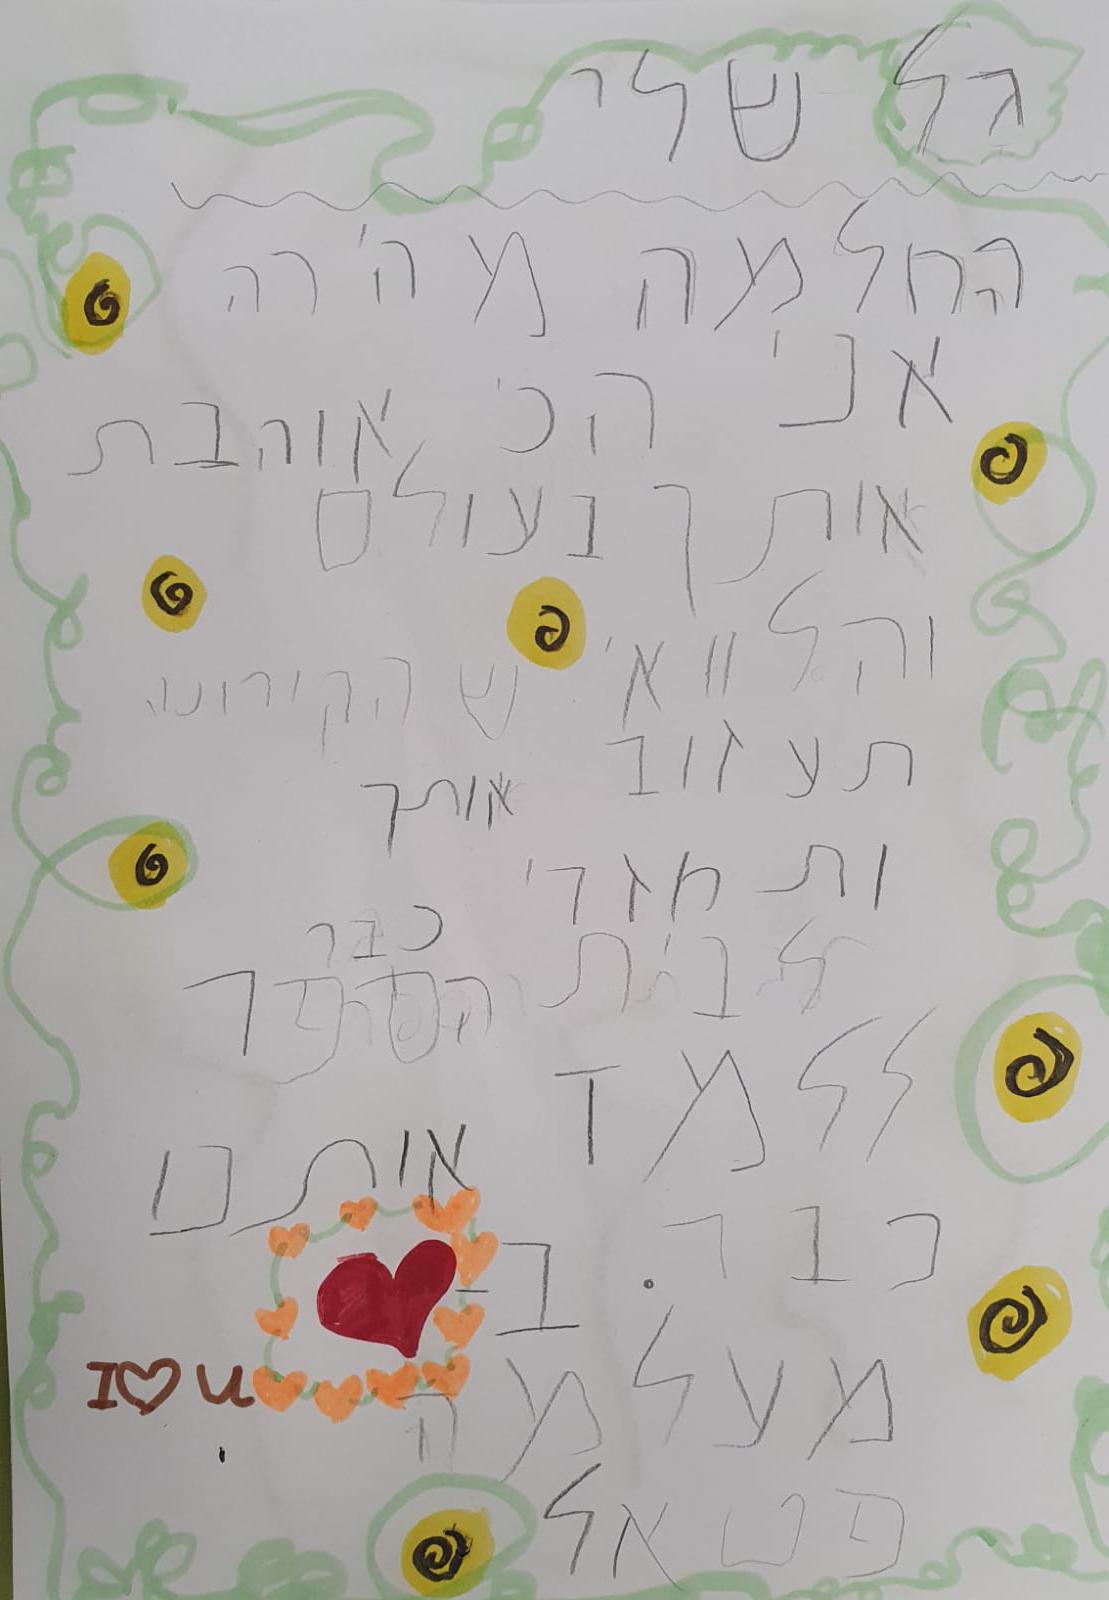 גל שלי
החלמה מהירה
אני הכי אוהבת
אותך בעולם
והלוואי שהקירונה
תעזוב אותך
ותחזרי כבר
לבית הספר
ללמד אותנו
כבר. ב-
מעלמה
פטאל
I♡U